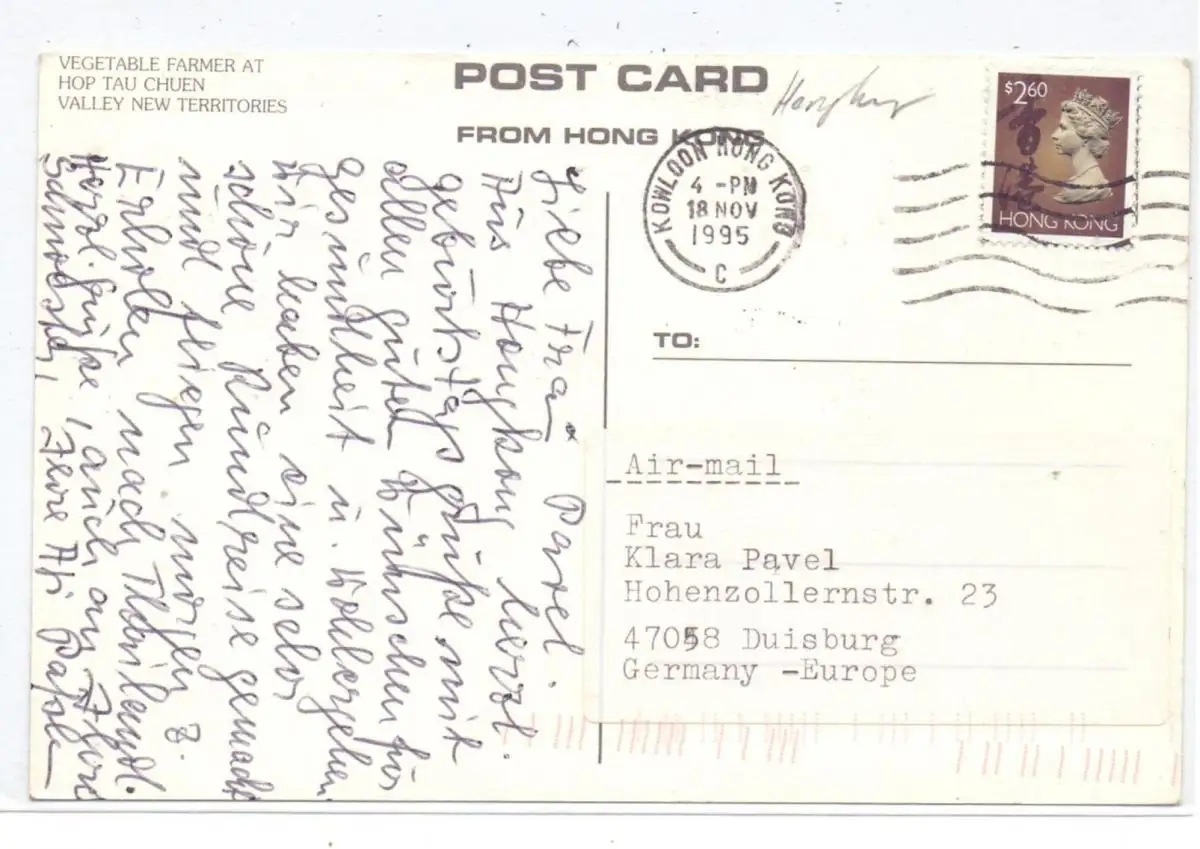 VEGETABLE FARMER AT
HOP TAU CHUEN
VALLEY NEW TERRITORIES
POST CARD
FROM HONG KONG
Hongkong
KOWLOON HONG KONG
4 -PM
18 NOV
1995
C
$2.60
香港
HONG KONG
TO:
Air-mail
Frau
Klara Pavel
Hohenzollernstr. 23
47058 Duisburg
Germany -Europe
Liebe Frau Pavel.
Aus Hongkong herzl.
Geburtstagsgrüße mit
allen guten Wünschen für
Gesundheit u. Wohlergehen
Wir haben eine sehr
schöne Rundreise gemacht
und fliegen morgen z.
Erholen nach Thailand.
Herzl. Grüße, auch an